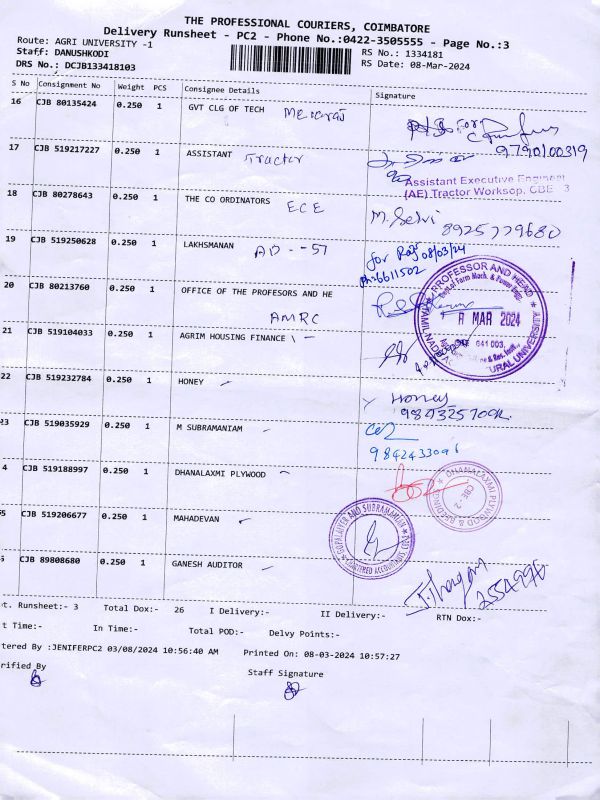 THE PROFESSIONAL COURIERS, COIMBATORE
Delivery Runsheet - PC2 - Phone No.:0422-3505555 - Page No.:3
Route: AGRI UNIVERSITY -1
RS No.: 1334181
Staff: DANUSHKODI
RS Date: 08-Mar-2024
DRS No.: DCJB133418103
S No Consignment No Weight PCS Consignee Details Signature
16 CJB 80135424 0.250 1 GVT CLG OF TECH
For
9790100319
17 CJB 519217227 0.250 1 ASSISTANT Tractor
Assistant Executive Engineer
(AE) Tractor Worksop, CBE 3
18 CJB 80278643 0.250 1 THE CO ORDINATORS ECE
M. Selvi 8925779680
19 CJB 519250628 0.250 1 LAKHSMANAN AD - - 57
for Raj 08/03/24
Ph: 6611502
20 CJB 80213760 0.250 1 OFFICE OF THE PROFESORS AND HE
AMRC
PROFESSOR AND HEAD
Dept. of Farm Mach. & Power Engg.
8 MAR 2024
641 003.
TAMIL NADU AGRICULTURAL UNIVERSITY
21 CJB 519104033 0.250 1 AGRIM HOUSING FINANCE \
22 CJB 519232784 0.250 1 HONEY
Honey
23 CJB 519035929 0.250 1 M SUBRAMANIAM
9842433096
4 CJB 519188997 0.250 1 DHANALAXMI PLYWOOD
DHANALAXMI PLYWOOD &
CBE-2
5 CJB 519206677 0.250 1 MAHADEVAN
GOPALAIYER AND SUBRAMANIAN
CHARTERED ACCOUNTANTS
6 CJB 89808680 0.250 1 GANESH AUDITOR
t. Runsheet:- 3 Total Dox:- 26 I Delivery:- II Delivery:- RTN Dox:-
t Time:- In Time:- Total POD:- Delvy Points:-
tered By :JENIFERPC2 03/08/2024 10:56:40 AM Printed On: 08-03-2024 10:57:27
rified By Staff Signature